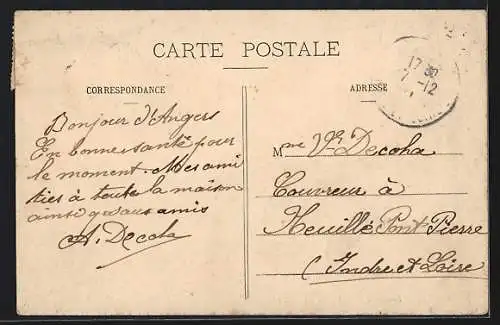 CARTE POSTALE
CORRESPONDANCE
ADRESSE
17 30
7 - 12
Bonjour d'Angers
En bonne santé pour
le moment. Mes ami
tiés à toute la maison
ainsi qu'aus amis
A. Decoh
Mme Ve Decoha
Couvreur à
Neuillé Pont Pierre
(Indre et Loire)